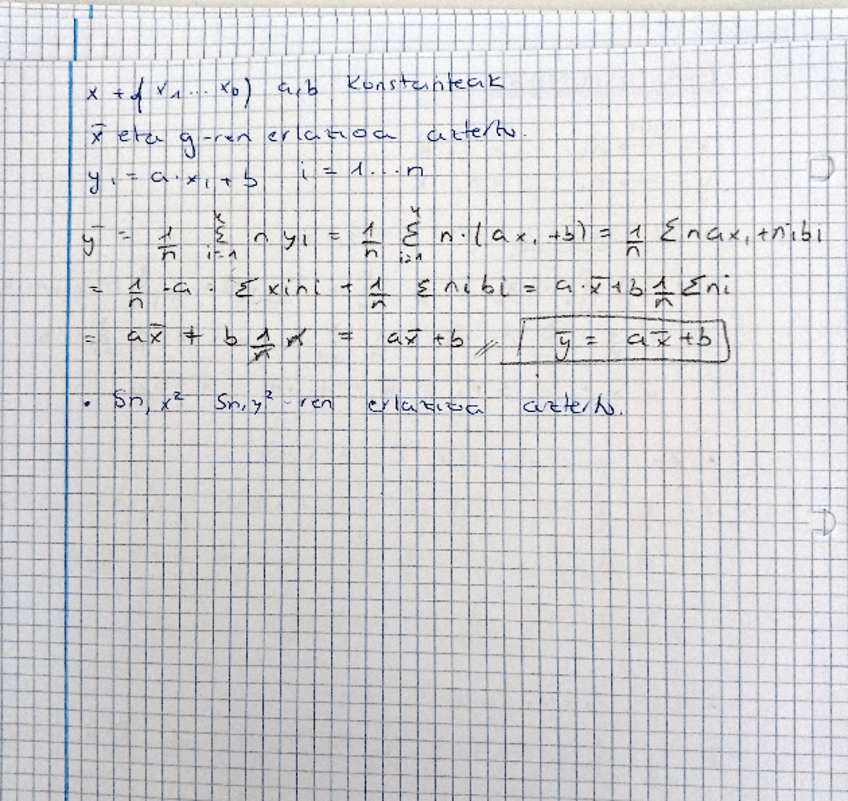 x + { x₁ ... x_b ) a,b Konstanteak
x̄ eta g-ren erlazioa aztertu.
y₁ = a·x₁ + b i = 1...n
ȳ = 1/n Σ_{i=1}^{k} n y₁ = 1/n Σ_{i=1}^{k} n·(ax₁ + b) = 1/n Σ n a x₁ + nibi
= 1/n · a · Σ xini + 1/n Σ ni bi = a·x̄ + b 1/n Σni
= ax̄ + b 1/n n = ax̄ + b // ȳ = ax̄ + b
• Sn,x² Sn,y²-ren erlazioa aztertu.